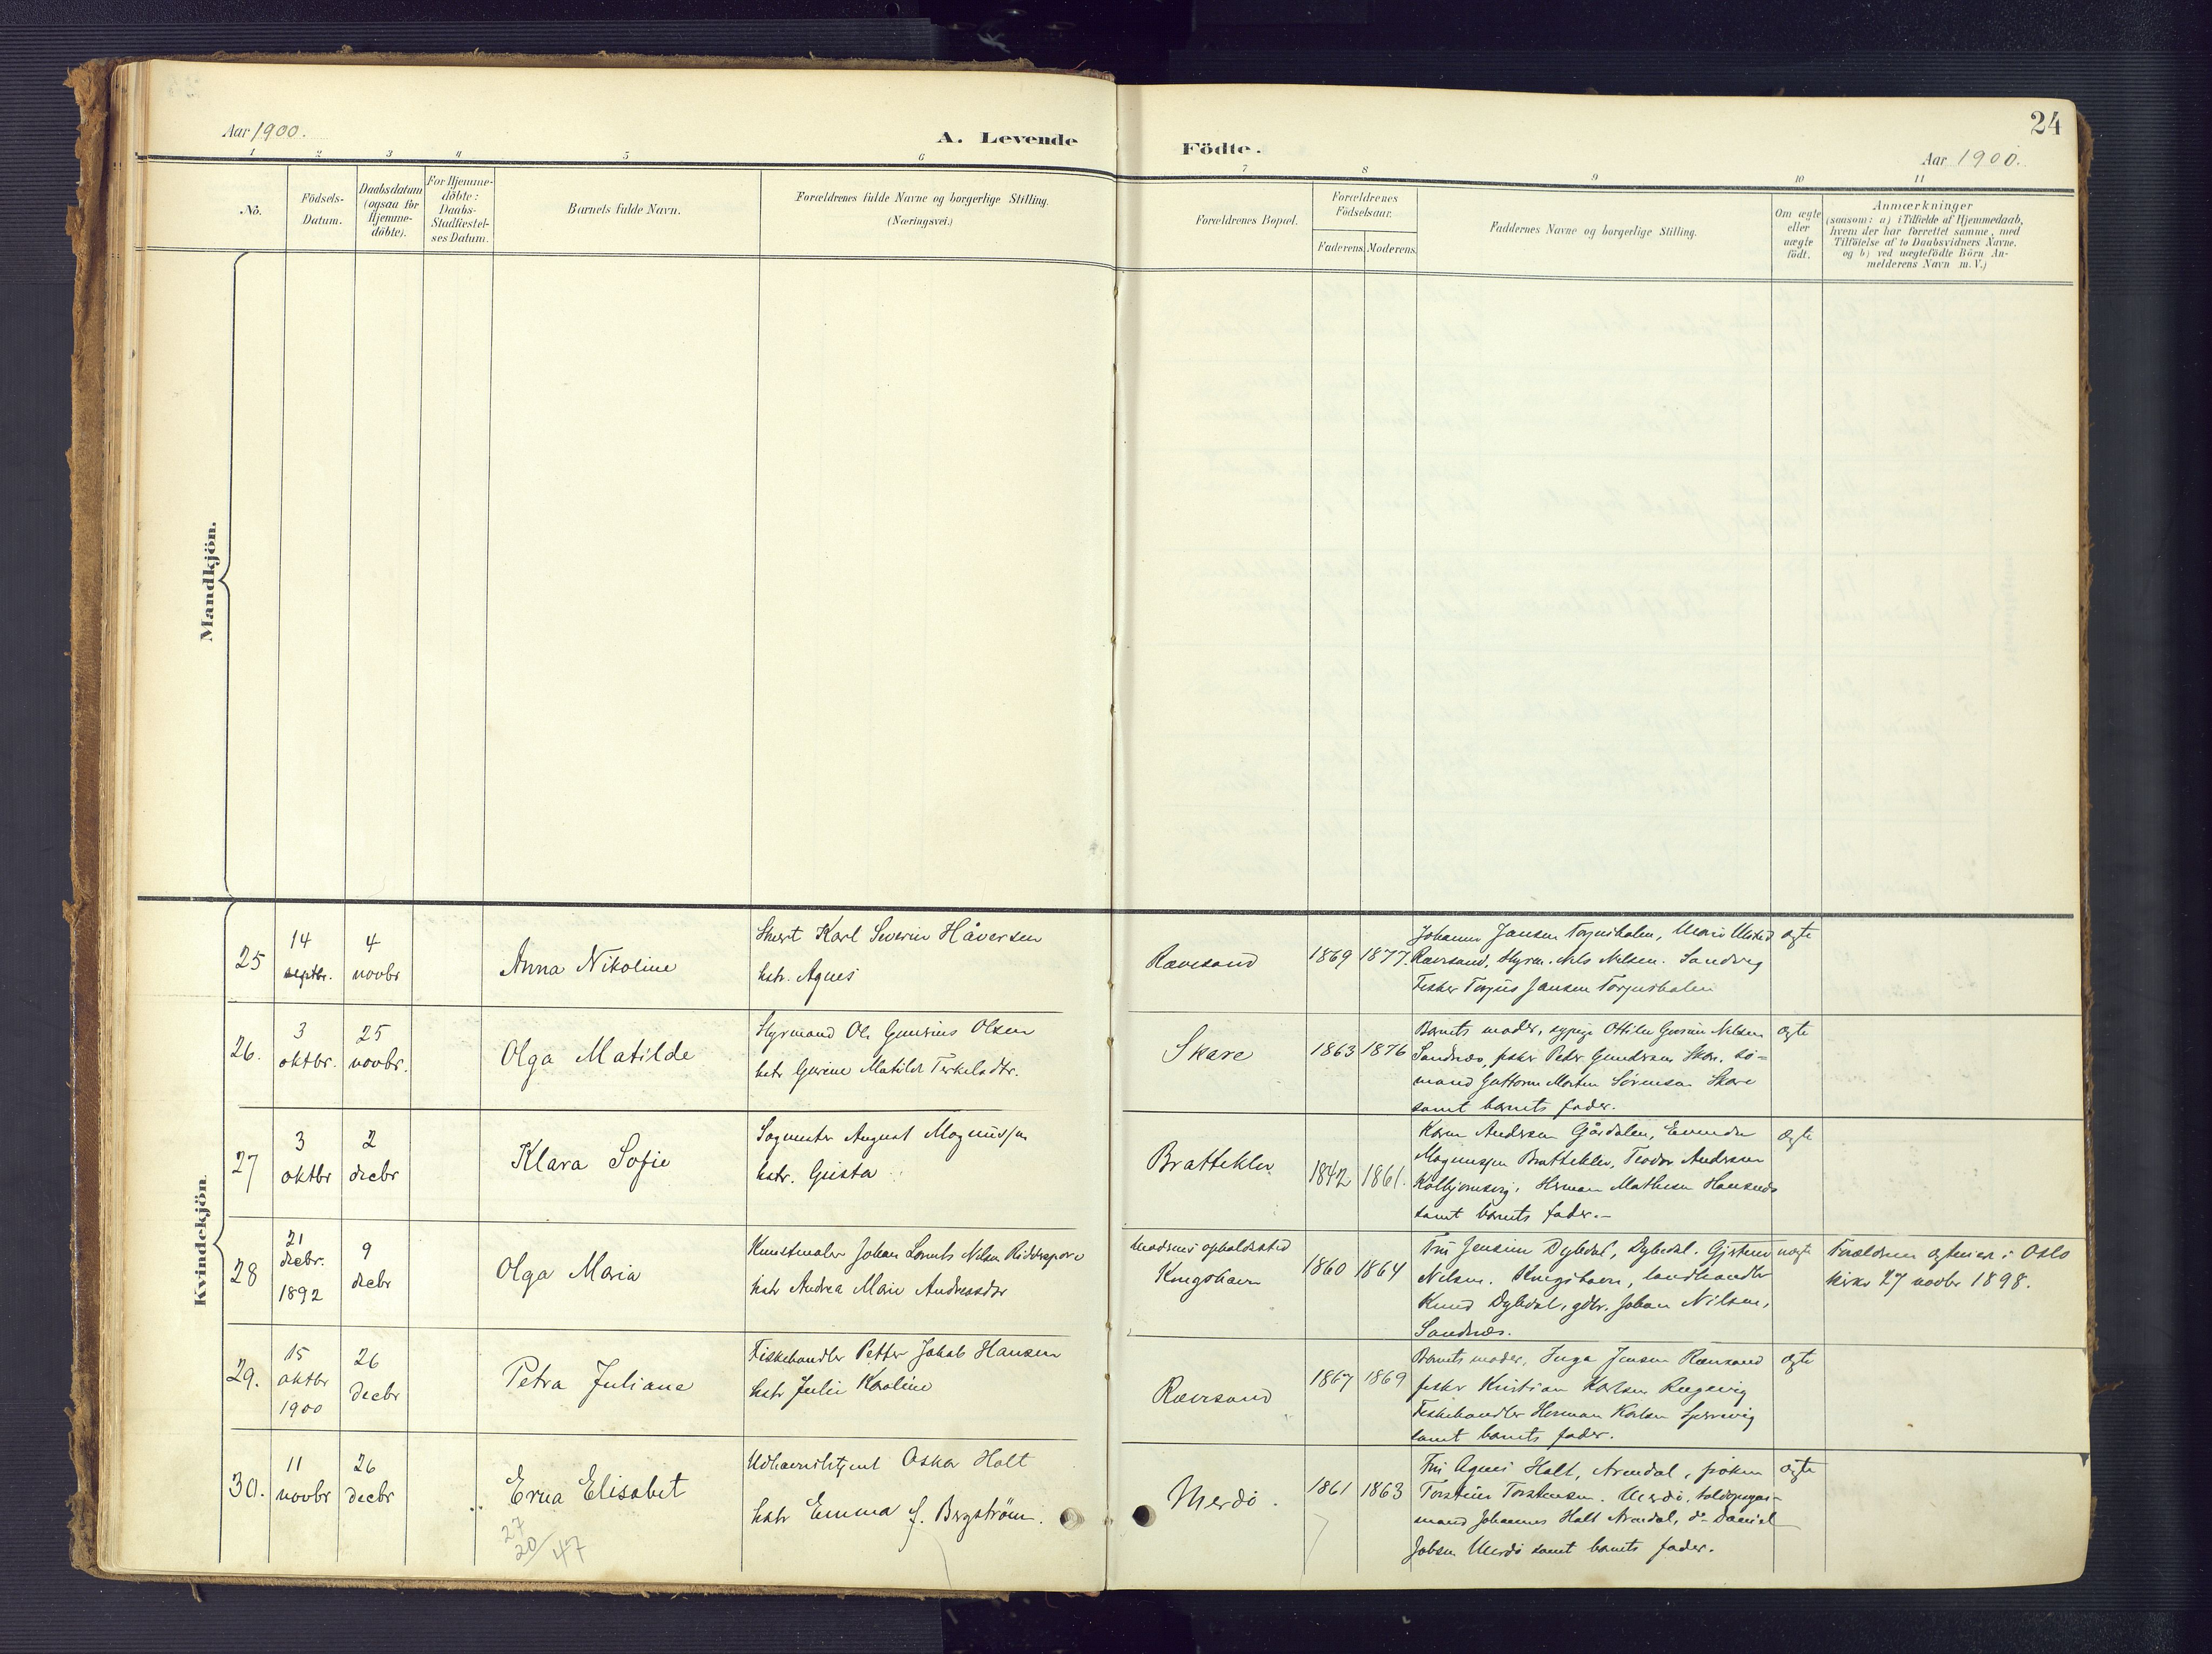 24
Aar 1900.
A. Levende
Födte.
Aar 1900.
1 2 3 4 5 6 7 8 9 10 11
No.
Födsels-
Datum.
Daabsdatum
(ogsaa for
Hjemme-
döbte).
For Hjemme-
döbte:
Daabs-
Stadfæstel-
ses Datum.
Barnets fulde Navn.
Forældrenes fulde Navne og borgerlige Stilling.
(Næringsvei.)
Forældrenes Bopæl.
Forældrenes
Födselsaar.
Faderens. Moderens.
Faddernes Navne og borgerlige Stilling.
Om ægte
eller
uægte
födt.
Anmærkninger
(saasom: a) i Tilfælde af Hjemmedaab,
hvem der har forrettet samme, med
Tilföielse af to Daabsvidners Navne.
og b) ved uægtefödte Börn An-
melderens Navn m. V.)
Mandkjön.
Kvindekjön.
25
14
septbr.
4
novbr
Anna Nikoline
Karl Severin Håversen
hstr. Agnes
Rævesand
1869 1877.
Johanne Jansen Torjusholm,
Rævesand, Styrm. Nils Nilsen. Sandvig
Fisker Torjus Jansen Torjusholm
ægte
26.
3
oktbr.
25
novbr.
Olga Matilde
Styrmand Ole Gunerius Olsen
hstr Gurine Matilde Terkelsdtr.
Skare
1863 1876
Barnets moder, sypige Ottilie Nilsen
Sandnæs, fisker Peder Gundersen Skare, sö-
mand Guttorm Morten Sörensen Skare
samt barnets fader.
ægte
27
3
oktbr
2
decbr
Klara Sofie
Sagmester August Magnussen
hstr. Gusta
Bratteklev
1842 1861.
Karen Andersen Gårdalen,
Magnussen Bratteklev, Teodor Andersen
Kolbjørnsvig, Herman Mathisen Hausnæs
samt barnets fader.-
ægte
28
21
decbr.
1892
9
decbr
Olga Maria
Kunstmaler Johan Lorents Nilsen Ridderspore
hstr Andrea Marie Andreasdtr
Moderens opholdssted
Kongshavn
1860 1864
Fru Jensine Dybedal, Dybedal. Gjestine
Nilsen. Kongshavn, landhandler
Knud Dybedal, gdbr. Johan Nilsen,
Sandnæs.
uægte
Forældrene ægteviet i Oslo
kirke 27 novbr 1898.
29.
15
oktbr
1900
26
decbr
Petra Juliane
Fiskehandler Petter Jakob Hansen
hstr Julie Karoline
Rævesand
1867 1869
Barnets moder, Inga Jensen Rævesand
fisker Kristian Karlsen Rægevig
Fiskehandler Herman Karlsen
samt barnets fader.
ægte
30.
11
novbr
26
decbr
Erna Elisabet
Oskar Holt
hstr Emma f. Bergström.
Merdö.
1861 1863
Fru Agnes Holt, Arendal, fröken
Torstensen. Merdö,
mand Johannes Holt Arendal, do Daniel
Jobsen Merdö samt barnets fader.
ægte
27
20/47